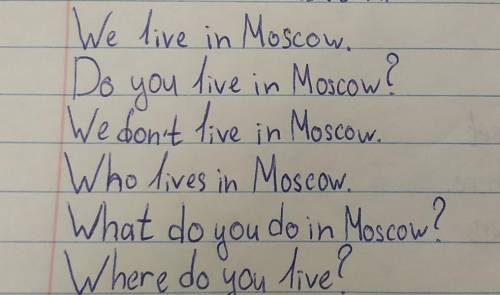 We live in Moscow.
Do you live in Moscow?
We don't live in Moscow.
Who lives in Moscow.
What do you do in Moscow?
Where do you live?